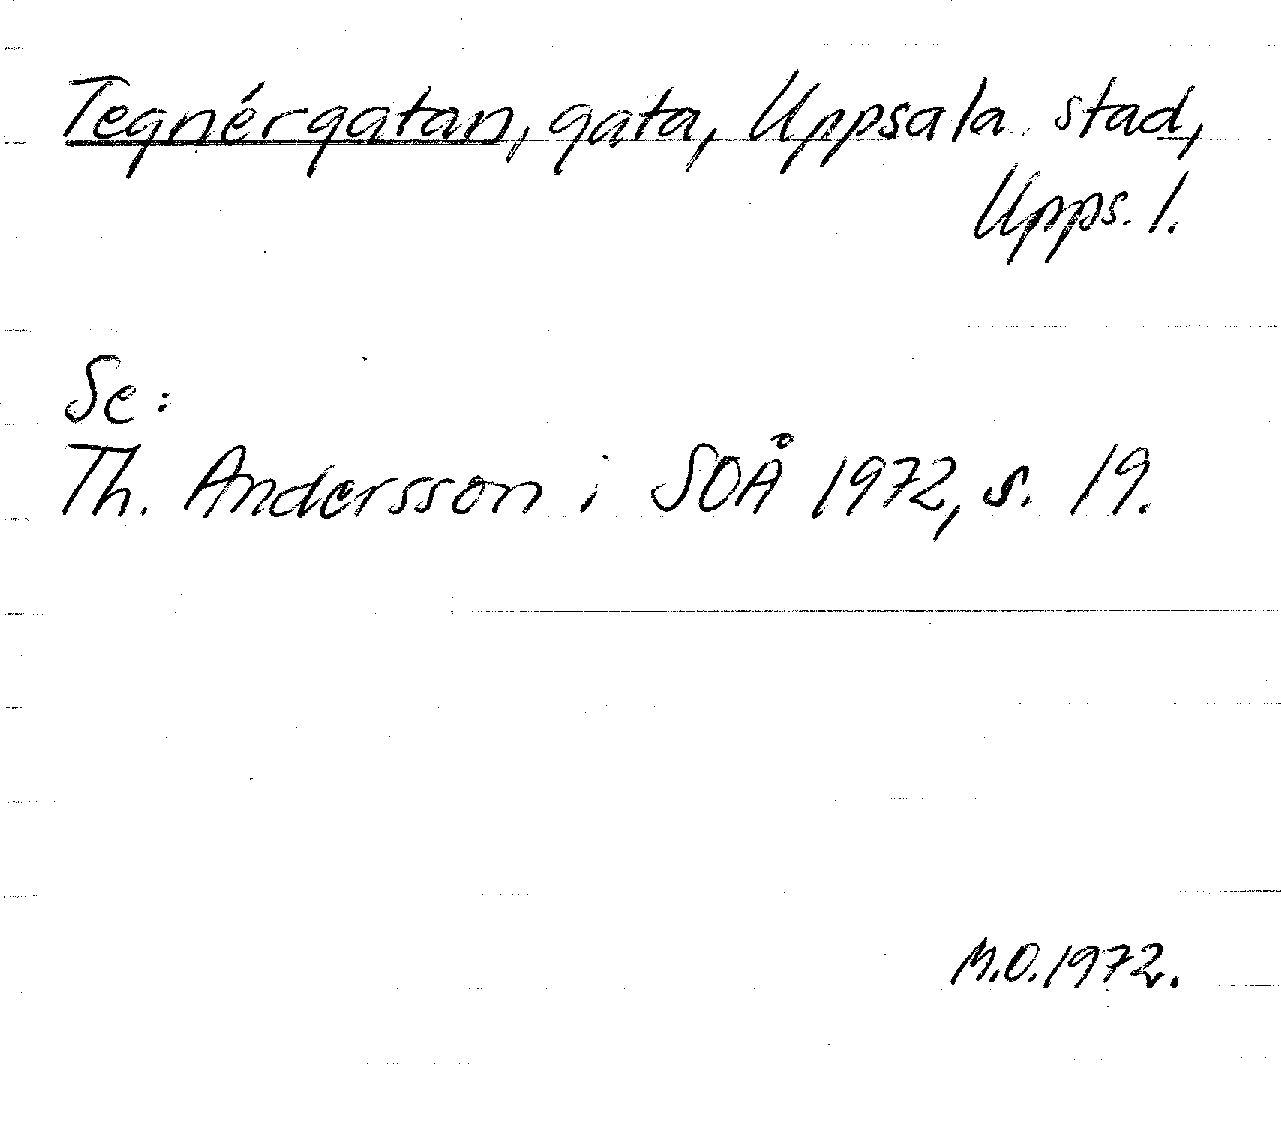 Tegnérgatan, gata, Uppsala stad,
Upps. l.
Se:
Th. Andersson i SOÅ 1972, s. 19.
M.O. 1972.